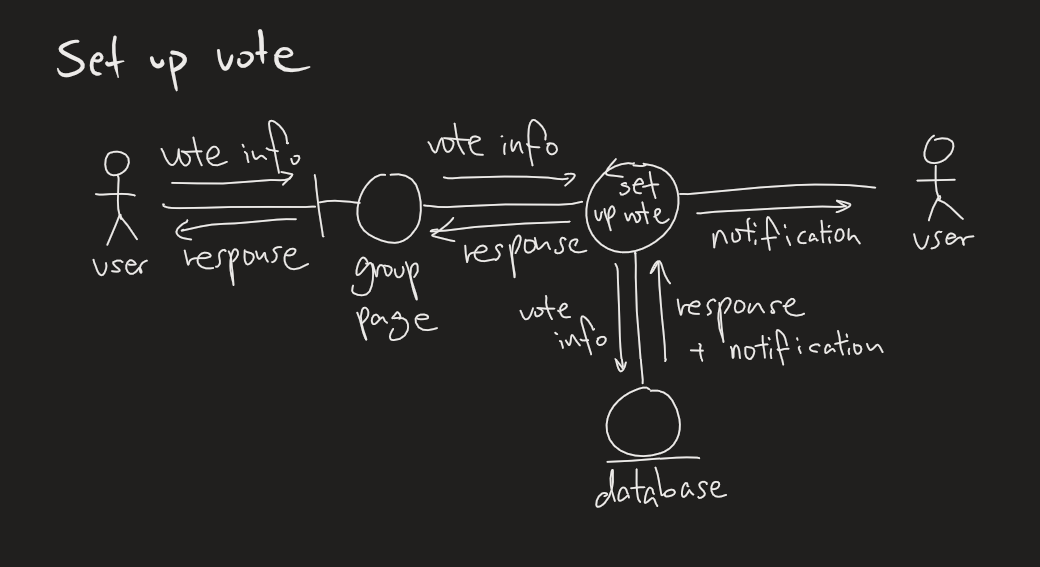 Set up vote
vote info
response
user
group
page
vote info
response
set
up vote
notification
user
vote
info
response
+ notification
database